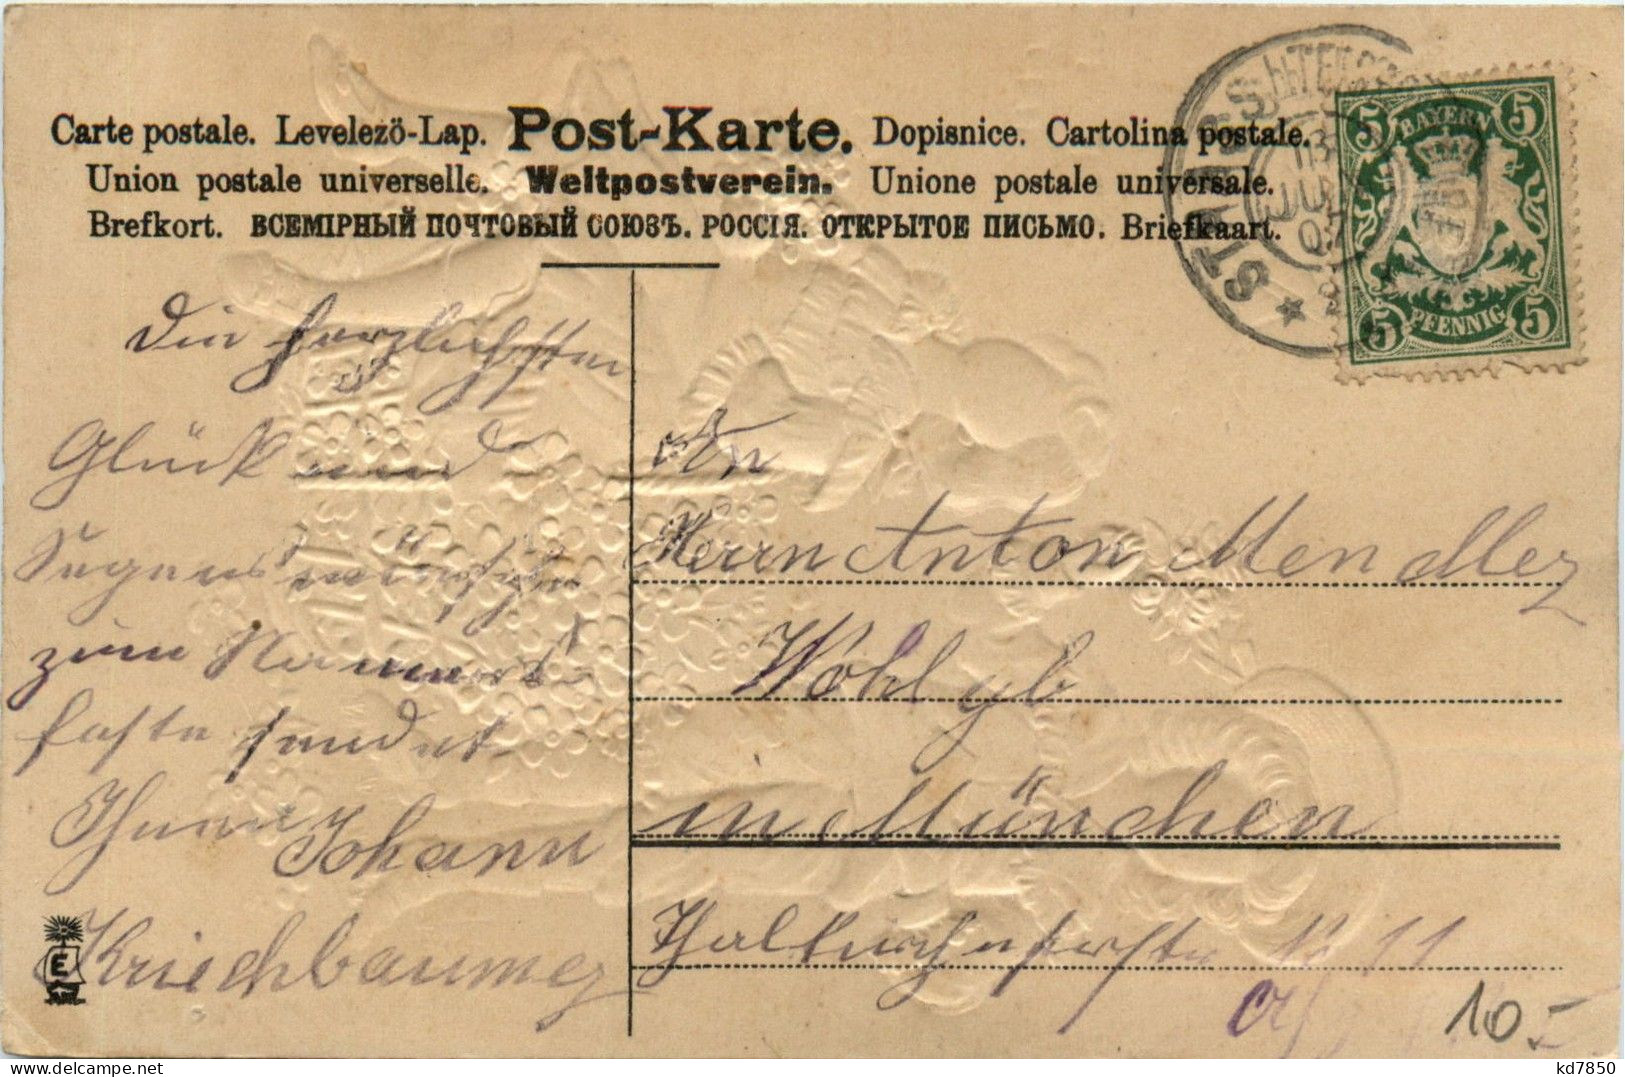 Carte postale. Levelezö-Lap. Post-Karte. Dopisnice. Cartolina postale.
Union postale universelle. Weltpostverein. Unione postale universale.
Brefkort. ВСЕМІРНЫЙ ПОЧТОВЫЙ СОЮЗЪ. РОССІЯ. ОТКРЫТОЕ ПИСЬМО. Briefkaart.
BAYERN
5 5
PFENNIG
5 5
JUN
07
Die herzlichsten
Glück und
Segenswünsche
zum Namens
feste sendet
Ihnen Johann
Kriechbaumer
An
Herrn Anton Mendler
Wohlgb
in München
No 11
10.-
E
kd7850